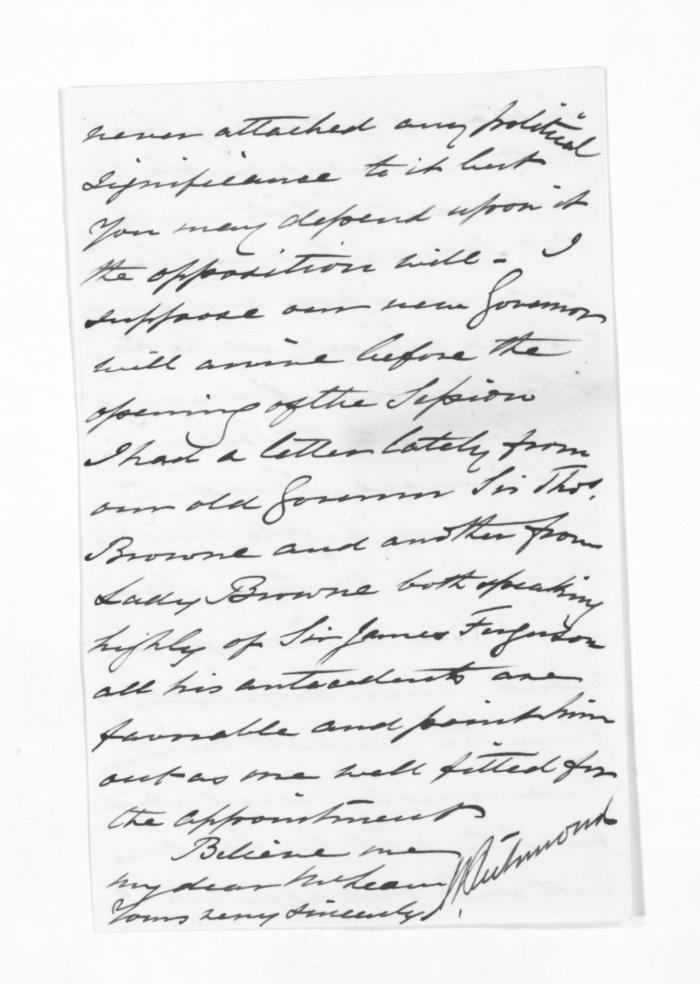 never attached any political
significance to it but
You may depend upon it
the opposition will - I
suppose our new Governor
will arrive before the
opening of the Session
I had a letter lately from
our old Governor Sir Thos.
Browne and another from
Lady Browne both speaking
highly of Sir James Ferguson
all his antecedents are
favorable and point him
out as one well fitted for
the appointment
Believe me
my dear McLean
Yours very sincerely
Richmond